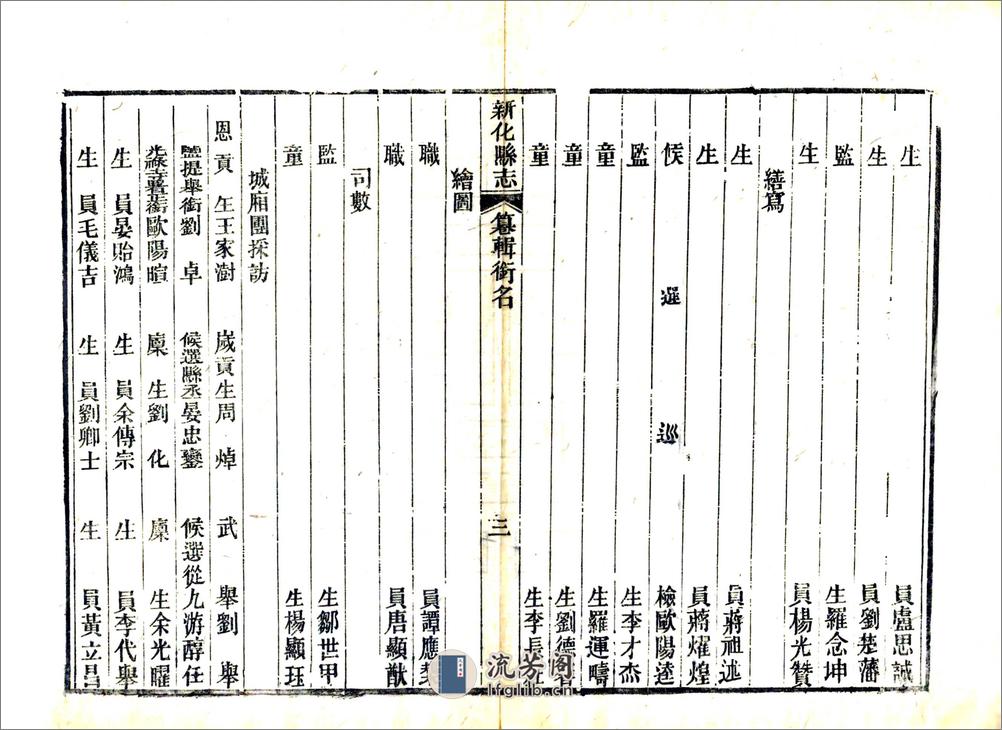 生員盧思誠
生員劉楚藩
監生羅念坤
生員楊光贊
繕寫
生員蔣祖述
生員蔣燿煌
候選巡檢歐陽逵
監生李才杰
童生羅運疇
童生劉德
童生李長
新化縣志 纂輯銜名 三
繪圖
職員譚應
職員唐顯猷
司數
監生鄒世甲
童生楊顯珏
城廂團採訪
恩貢生王家澍 歲貢生周焯 武舉劉舉
監提舉銜劉卓 候選縣丞晏忠鑾 候選從九游醇任
歐陽暄 廩生劉化 廩生余光曜
生員晏貽鴻 生員余傳宗 生員李代舉
生員毛儀吉 生員劉卿士 生員黃立昌
流芳阁
lfglib.cn